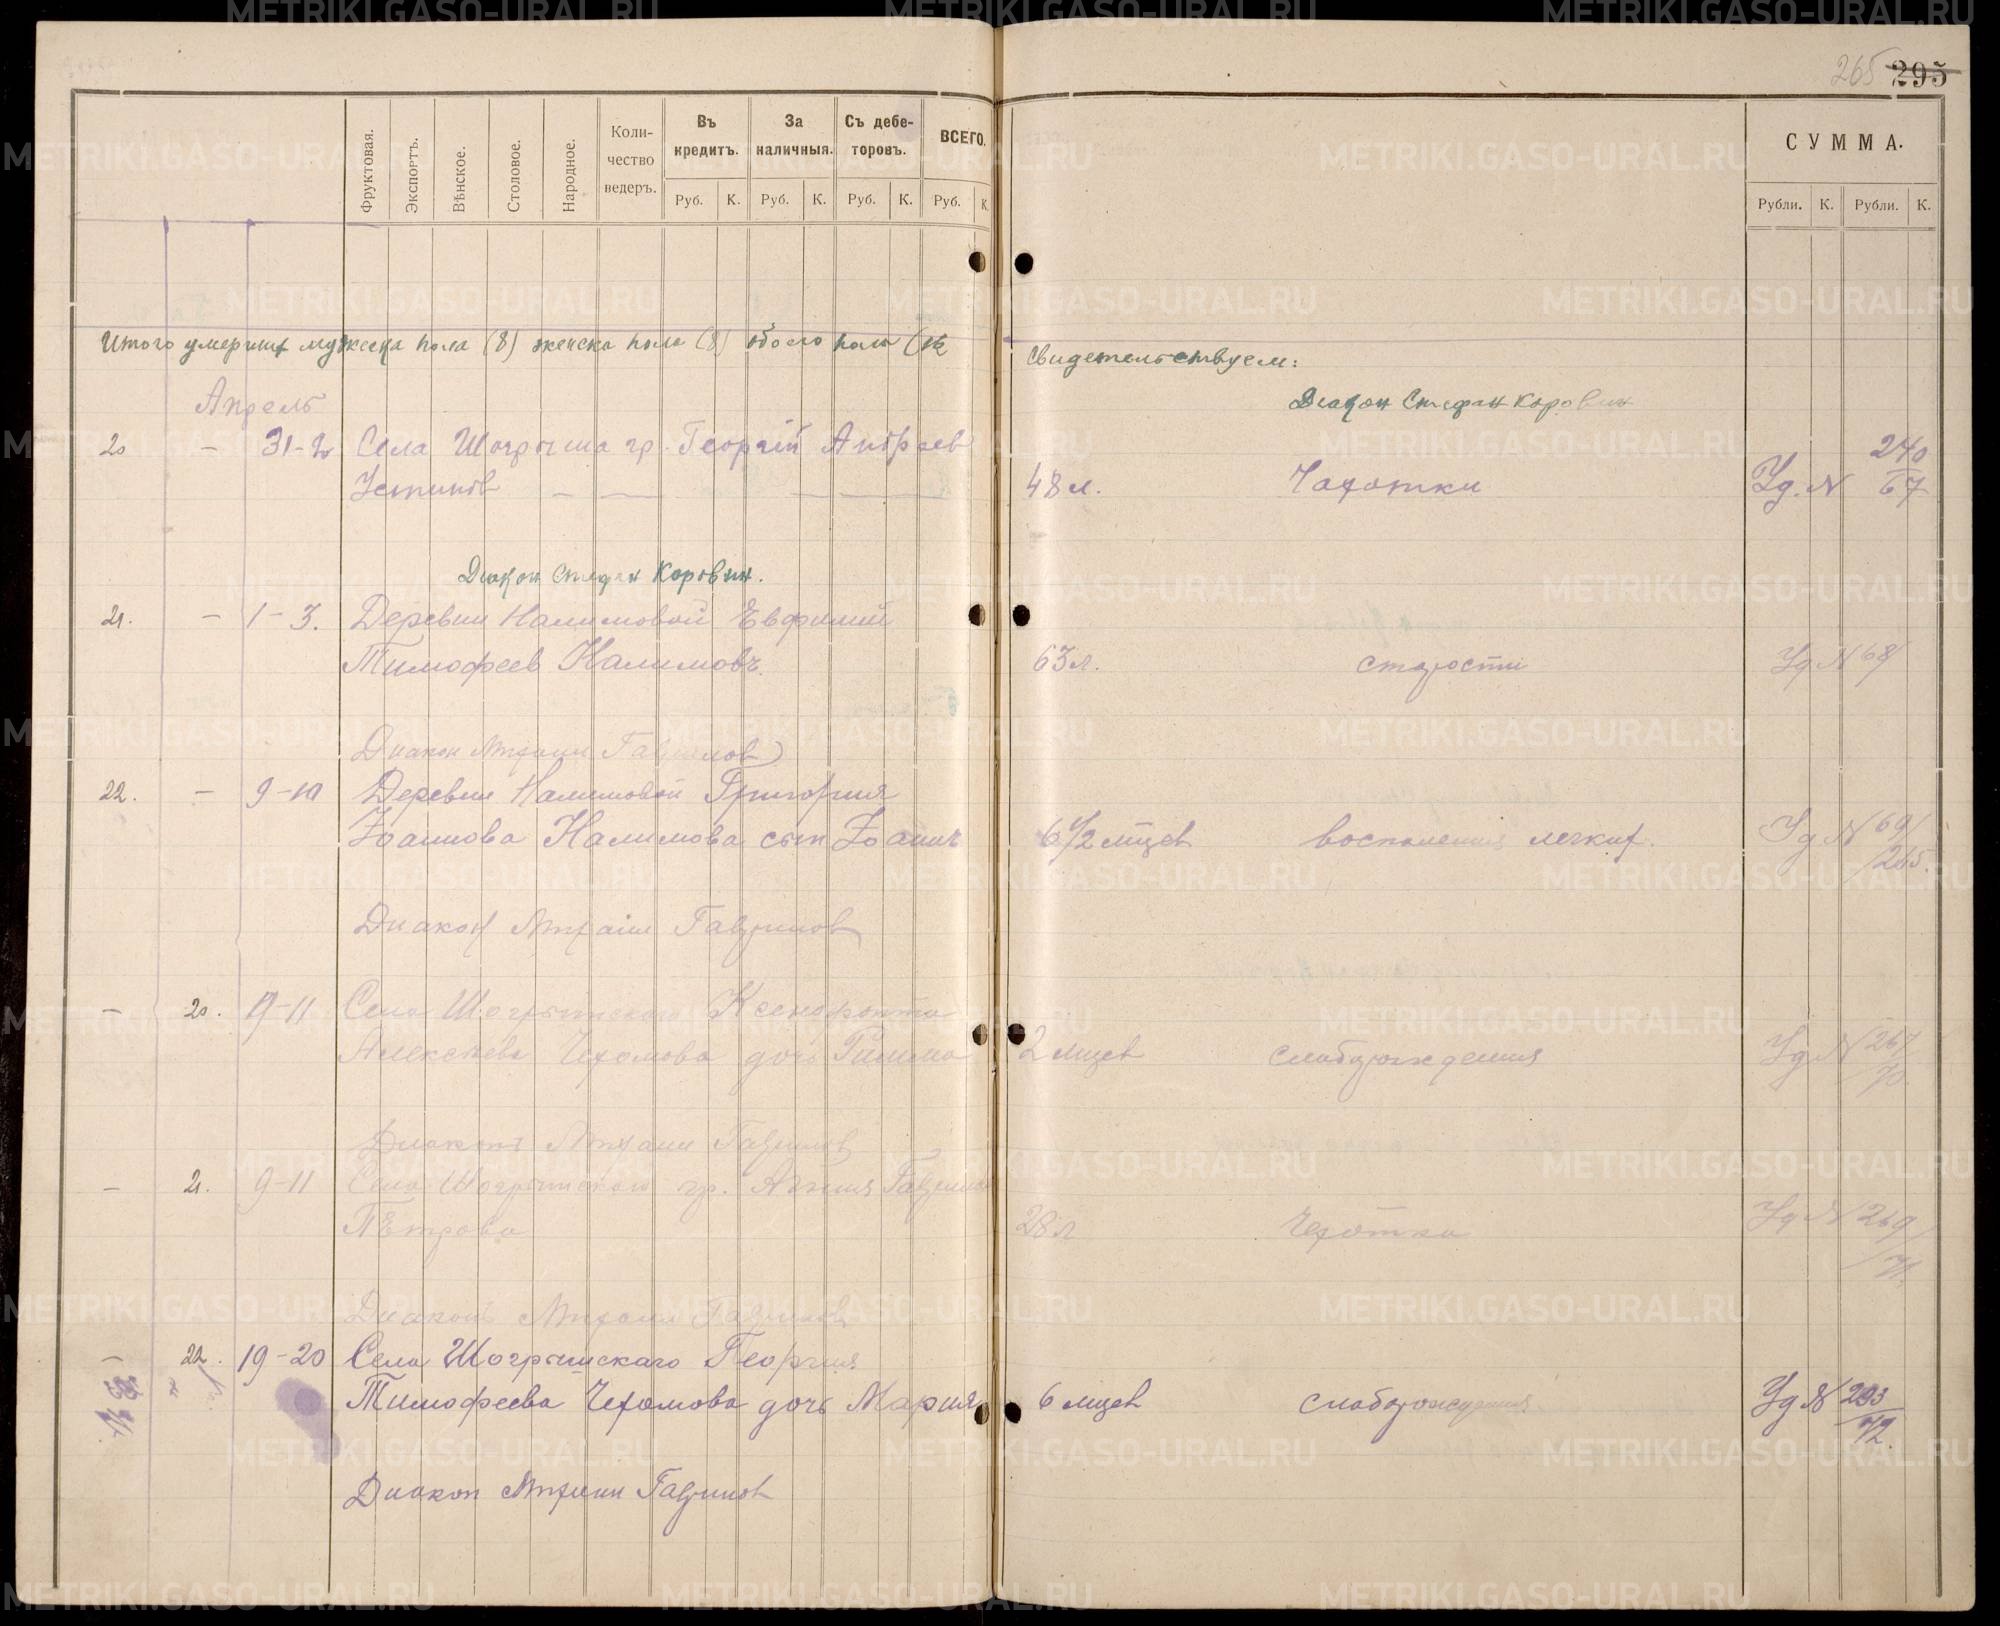 265 295
Фруктовая. Экспортъ. Вѣнское. Столовое. Народное. Коли-чество ведеръ. Въ кредитъ. За наличныя. Съ дебе-торовъ. ВСЕГО.
Руб. К. Руб. К. Руб. К. Руб. К.
СУММА.
Рубли. К. Рубли. К.
Итого умерших мужеска пола (8) женска пола (8) обоего пола (16
Свидетельствуем:
Диакон Стефан Коровин
Апрель
20 – 31-2 Села Шогрыша гр. Георгій Андреев
Устинов 48 л. Чахотки Уд. N 240/67
Диакон Стефан Коровин.
21. – 1-3. Деревни Налимовой Евфимий
Тимофеев Налимовъ. 63 л. старости Уд N 68/
Диакон Михаил Гаврилов
22. – 9-10 Деревни Налимовой Григория
Іоаннова Налимова сын Іоаннъ 6 1/2 мцев воспаления легких. Уд N 69/265.
Диакон Михаил Гаврилов
– 20. 9-11 Села Шогрышскаго Ксенофонта
Алексеева Чехомова дочь 2 мцев слаборождения Уд N 267/70.
Диаконъ Михаил Гаврилов
– 21. 9-11 Села Шогрышскаго гр. Агния
Петрова 28 л Чахотка Уд N 269/71.
Диакон Михаил Гаврилов
– 22. 19-20 Села Шогрышскаго Георгия
Тимофеева Чехомова дочь Мария 6 мцев слаборождения Уд N 293/72.
Диакон Михаил Гаврилов
METRIKI.GASO-URAL.RU